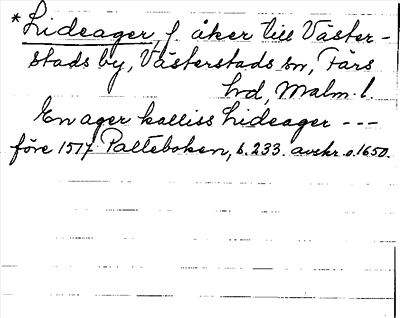 *Lideager, f. åker till Väster-
stads by, Västerstads sn, Färs
hd, Malm. l.
En ager kalliss Lideager ---
före 1517 Palteboken, s. 233. avskr. o. 1650.